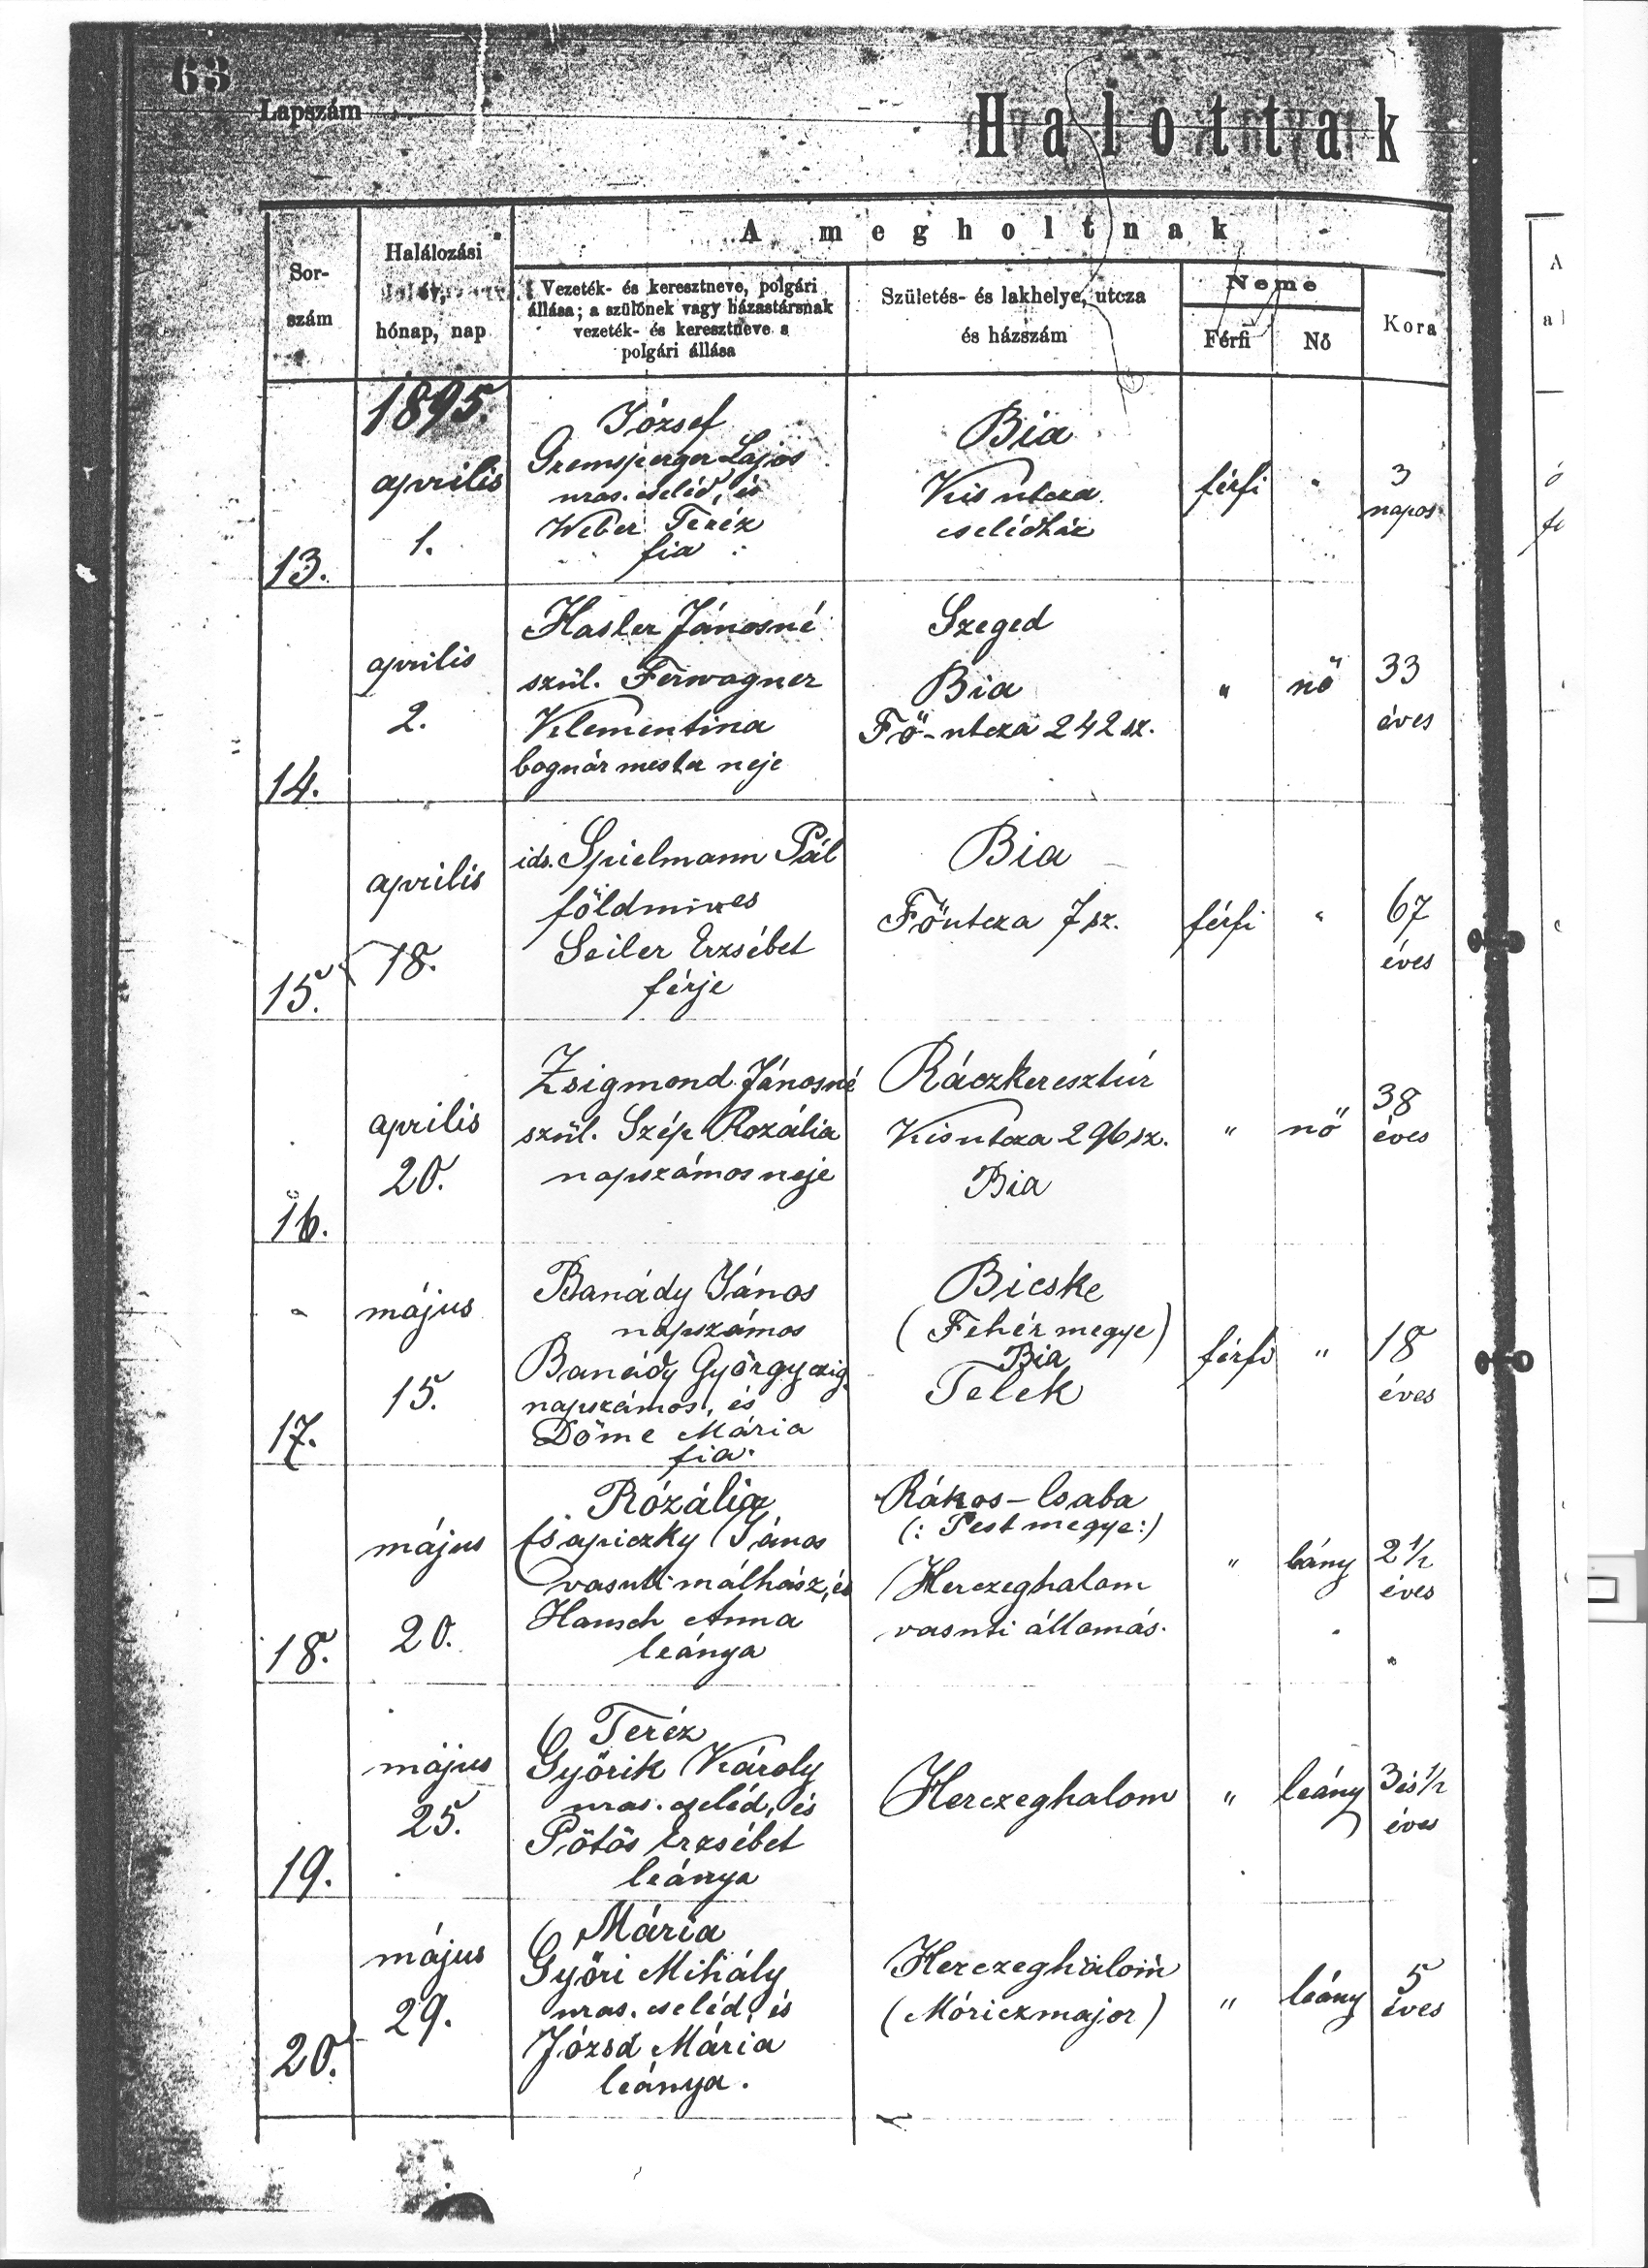 63
Lapszám
Halottak
A megholtnak
Sor-
szám
Halálozási
hónap, nap
Vezeték- és keresztneve, polgári
állása; a szülőnek vagy házastársnak
vezeték- és keresztneve s
polgári állása
Születés- és lakhelye, utcza
és házszám
Neme
Férfi
Nő
Kora
13.
1895.
április
1.
József
Gremsperger Lajos
uras. cseléd, és
Weber Teréz
fia
Bia
Kis utcza
cselédház
férfi
"
3
napos
14.
április
2.
Hasler Jánosné
szül. Ferwagner
Klementina
bognár mester neje
Szeged
Bia
Fő-utcza 242 sz.
"
nő
33
éves
15.
április
18.
id. Spielmann Pál
földmives
Seiler Erzsébet
férje
Bia
Főutcza 7 sz.
férfi
"
67
éves
16.
április
20.
Zsigmond Jánosné
szül. Szép Rozália
napszámos neje
Ráczkeresztúr
Kisutcza 296 sz.
Bia
"
nő
38
éves
17.
május
15.
Banády János
napszámos
Banády György czig.
napszámos, és
Döme Mária
fia.
Bicske
(Fehér megye)
Bia
Telek
férfi
"
18
éves
18.
május
20.
Rózália
Csapiczky János
vasuti málhász, és
Hansch Anna
leánya
Rákos-Csaba
(: Pest megye :)
Herczeghalom
vasuti állomás.
"
lány
2 1/2
éves
19.
május
25.
Teréz
Györik Károly
uras. cseléd, és
Pötös Erzsébet
leánya
Herczeghalom
"
leány
3 és 1/2
éves
20.
május
29.
Mária
Győri Mihály
uras. cseléd, és
Józsa Mária
leánya.
Herczeghalom
(Móriczmajor)
"
leány
5
éves